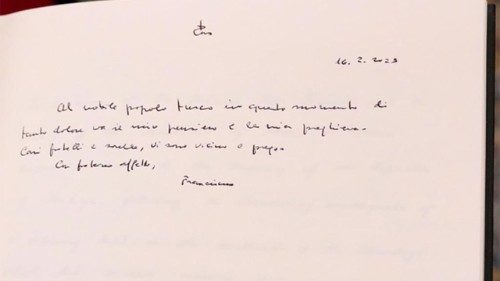 16.2.2023
Al nobile popolo turco in questo momento di
tanto dolore va il mio pensiero e la mia preghiera.
Cari fratelli e sorelle, vi sono vicino e prego.
Con fraterno affetto,
Francesco